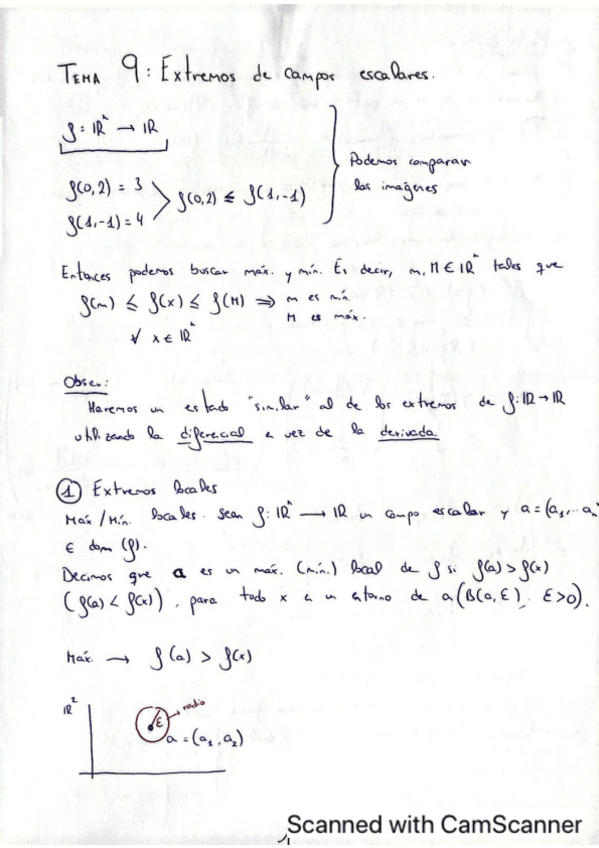 TEMA 9: Extremos de campos escalares.
f: ℝⁿ → ℝ
f(0,2) = 3
f(1,-1) = 4
f(0,2) ≤ f(1,-1)
Podemos comparar
las imágenes
Entonces podemos buscar máx. y mín. Es decir, m, M ∈ ℝⁿ tales que
f(m) ≤ f(x) ≤ f(M) ⇒ m es mín.
M es máx.
∀ x ∈ ℝⁿ
Obser:
Haremos un estudio "similar" al de los extremos de f: ℝ → ℝ
utilizando la diferecial e vez de la derivada
① Extremos locales
Máx / Mín. locales. Sean f: ℝⁿ → ℝ un campo escalar y a = (a₁, ... aₙ
∈ dom (f).
Decimos que a es un máx. (mín.) local de f si f(a) > f(x)
(f(a) < f(x)), para todo x e un etorno de a (B(a, ε). ε>0).
Máx. → f(a) > f(x)
ℝ²
ε → radio
a = (a₁, a₂)
Scanned with CamScanner